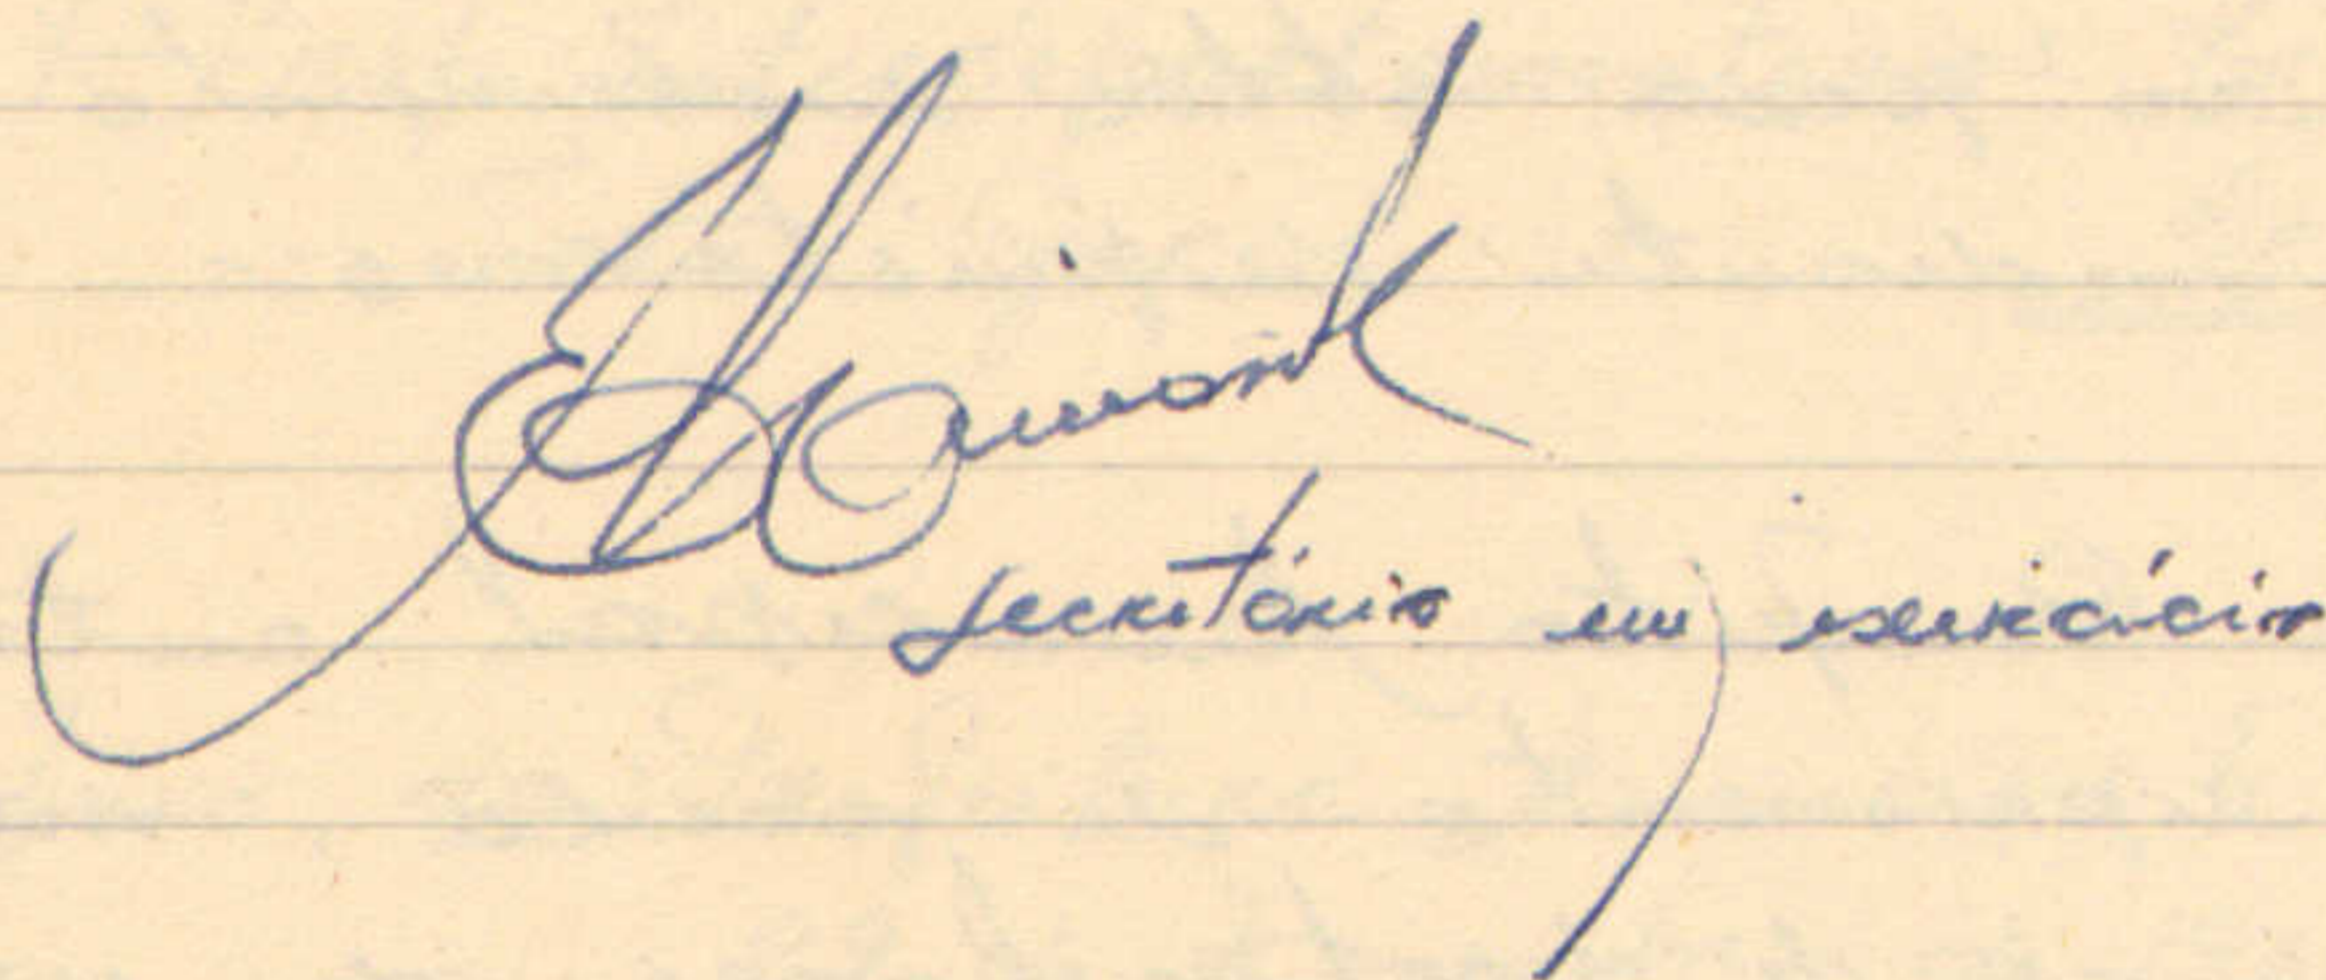 secretário em exercício